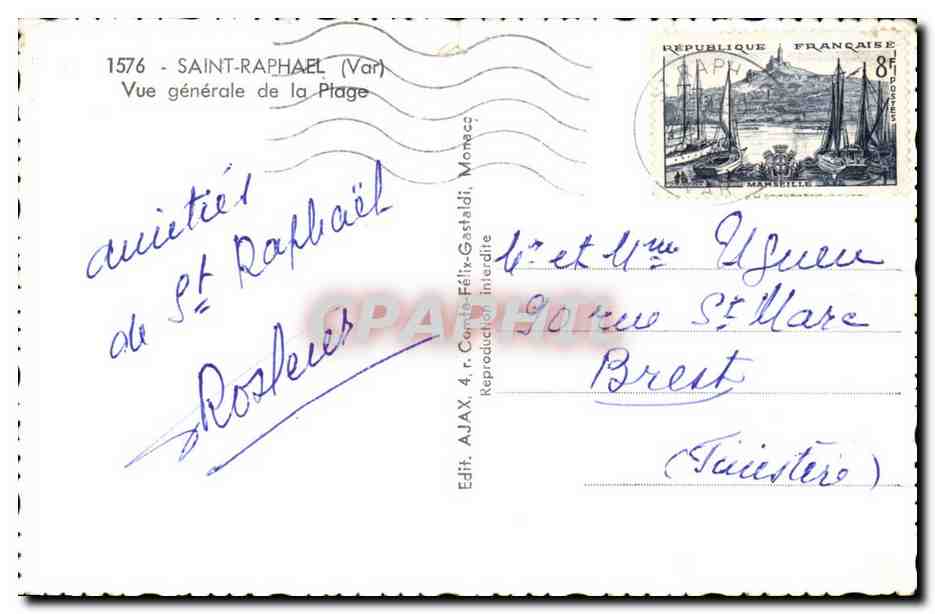 1576 - SAINT-RAPHAEL (Var)
Vue générale de la Plage
amitiés
de St Raphaël
Edit. AJAX, 4, r. Comte-Félix-Gastaldi, Monaco
Reproduction interdite
CPARHIL
RÉPUBLIQUE FRANÇAISE
8F
POSTES
MARSEILLE
RAPH
VAR
Mr et Mme Uguen
90 rue St Marc
Brest
(Finistère)